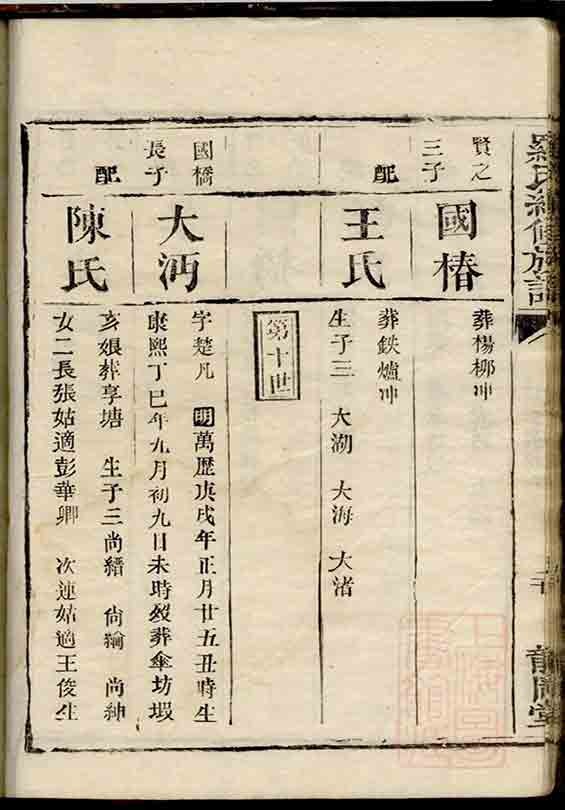 羅氏續修族譜
賢之
三子
國椿
葬楊柳冲
配
王氏
葬鉄爐冲
生子三 大湖 大海 大渚
第十世
國橋
長子
大沔
字楚凡 明萬歷庚戌年正月廿五丑時生
康熙丁巳年九月初九日未時歿葬傘坊塅
配
陳氏
亥娘葬享塘 生子三尚縉 尚綸 尚紳
女二長張姑適彭華卿 次連姑適王俊生